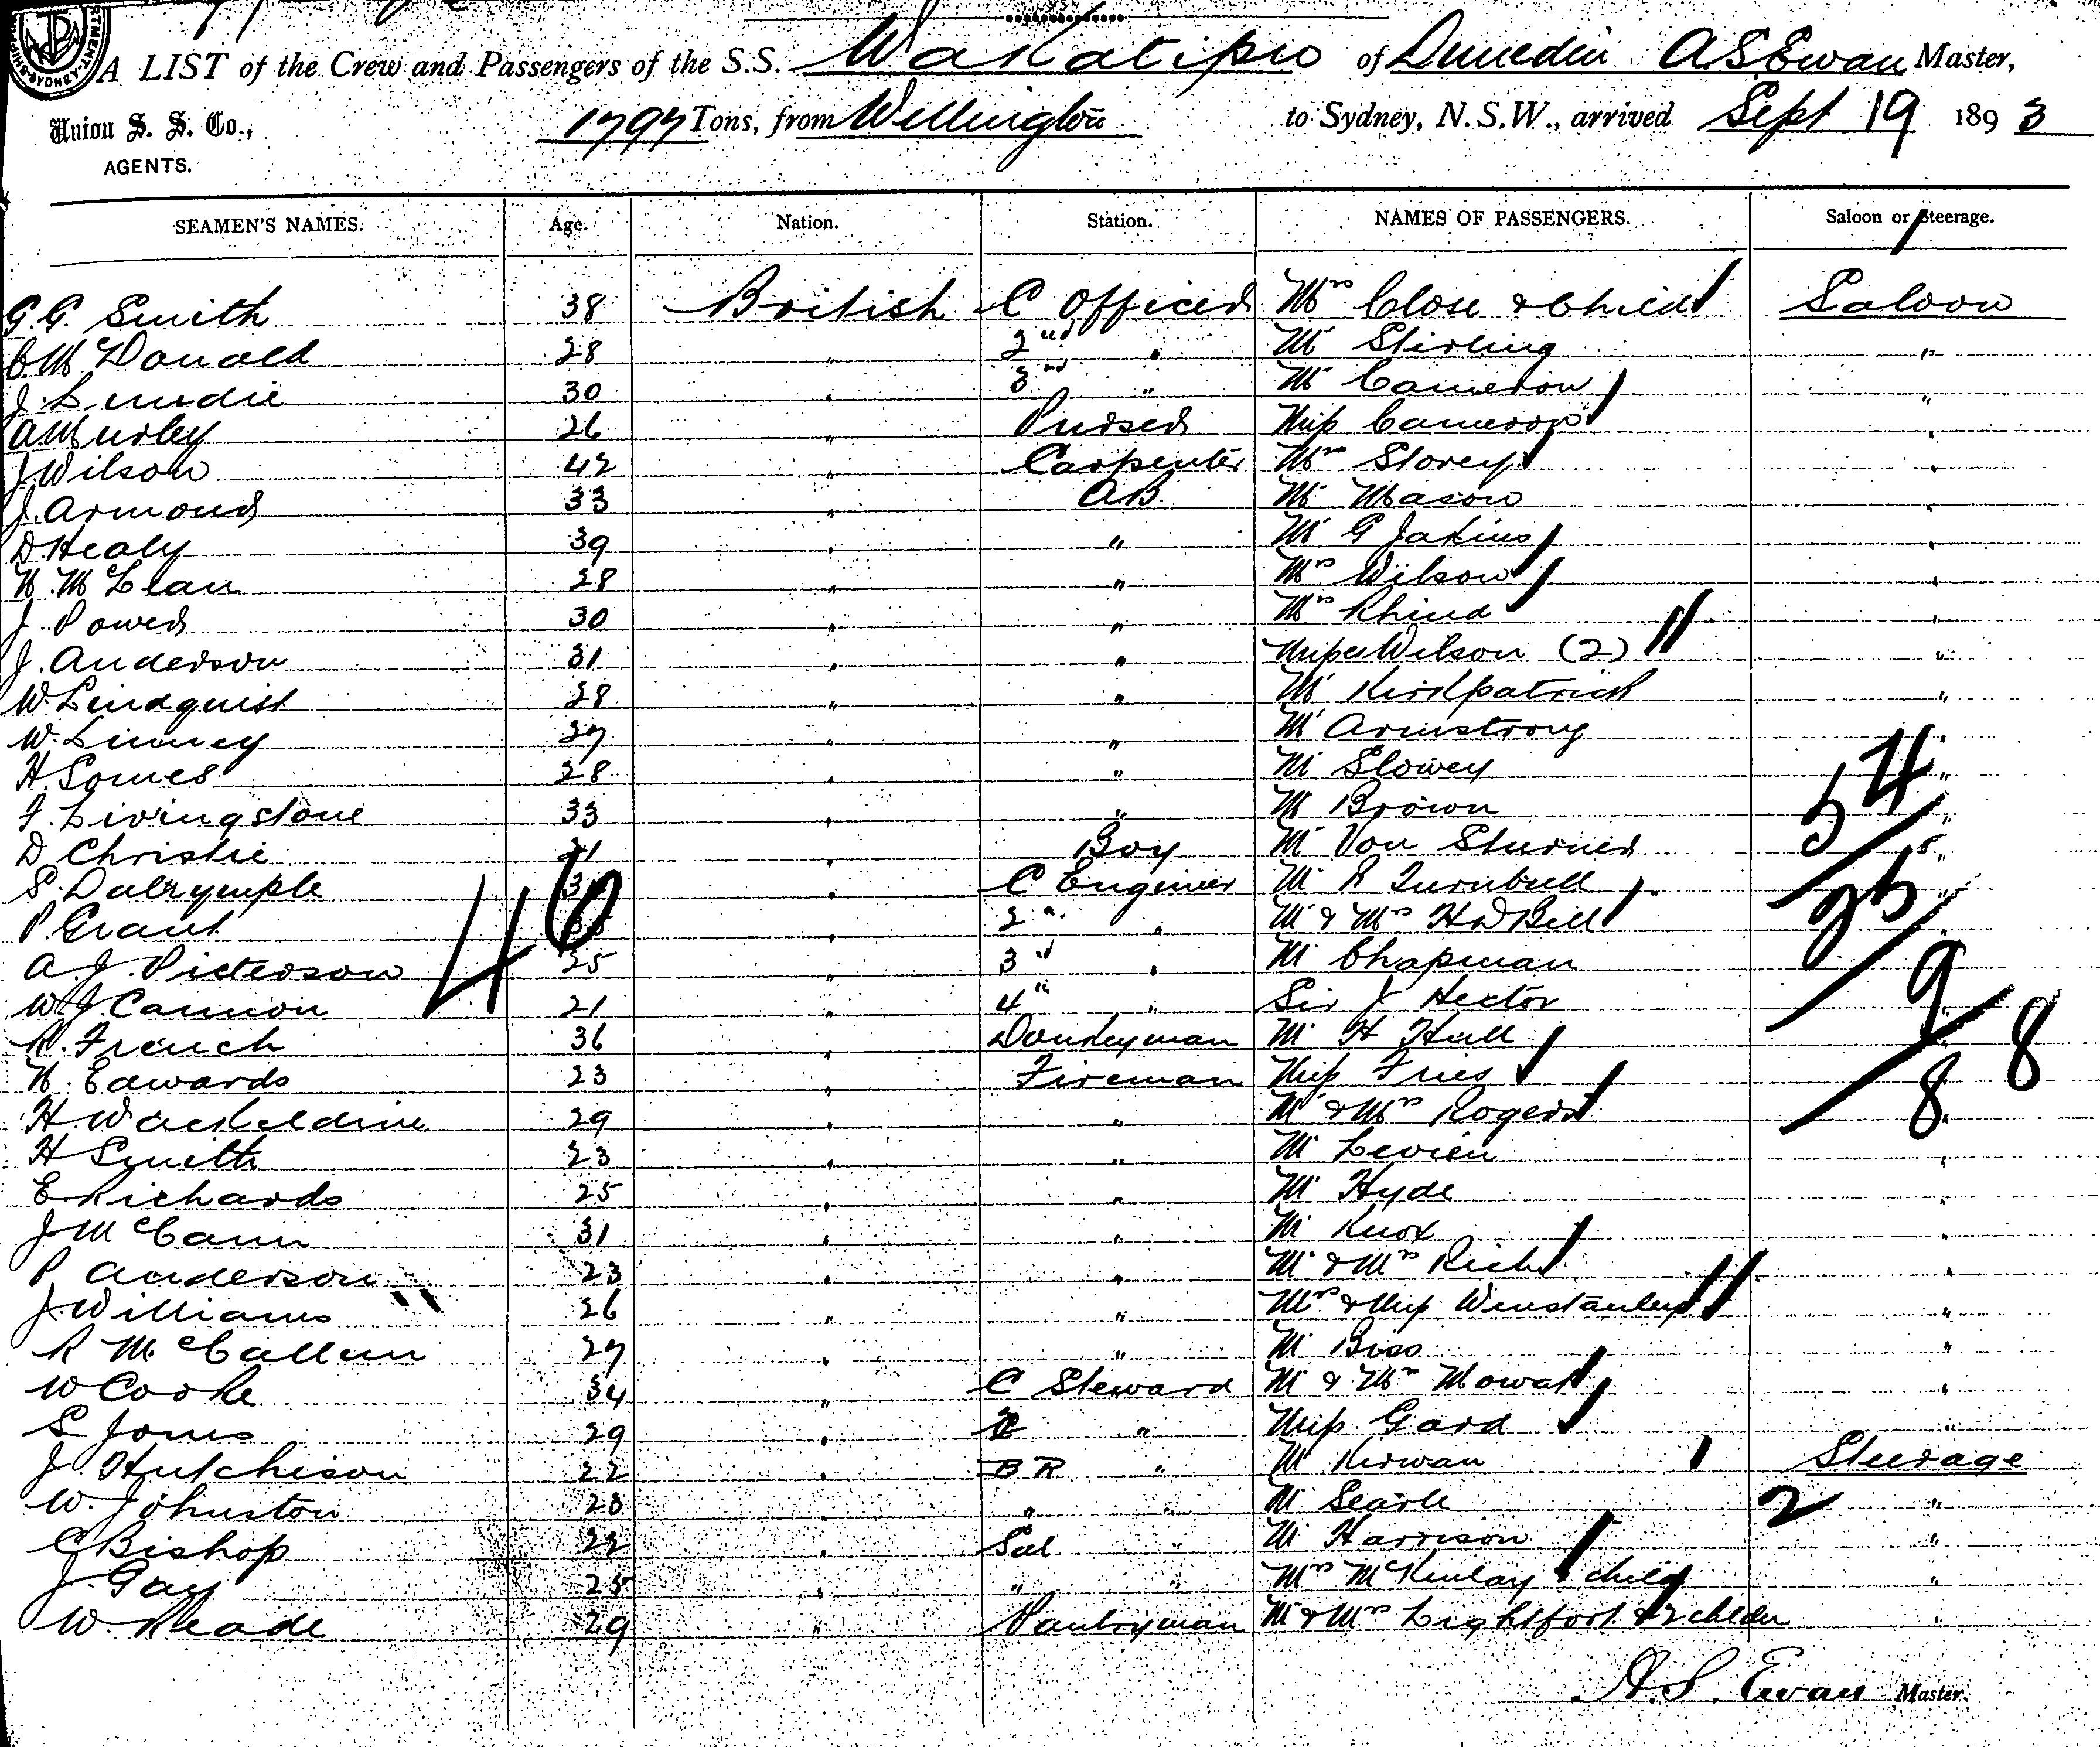 A LIST of the Crew and Passengers of the S.S. Wakatipu of Dunedin A S Ewan Master,
Union S. S. Co., 1797 Tons, from Wellington to Sydney, N.S.W., arrived Sept 19 1893
AGENTS.
SEAMEN'S NAMES. Age. Nation. Station. NAMES OF PASSENGERS. Saloon or Steerage.
G.G. Smith 38 British C Officer Mrs Close & Child Saloon
C McDonald 28 " 2nd " Mr Stirling "
J. Lundie 30 " 3rd " Mr Cameron "
A Murley 26 " Purser Miss Cameron "
J Wilson 42 " Carpenter Mrs Storey "
J. Armond 33 " AB Mr Mason "
D. Healy 39 " " Mr G Jakins "
N. McLean 28 " " Mrs Wilson "
J. Power 30 " " Mrs Rhind "
J. Anderson 31 " " Misses Wilson (2) "
W. Lindquist 28 " " Mr Kirkpatrick "
W. Linney 27 " " Mr Armstrong "
H. Somes 28 " " Mr Slowey "
F. Livingstone 33 " " Mr Brown "
D Christie 21 " Boy Mr Von Sturmer "
S. Dalrymple " C Engineer Mr R Turnbull
P. Grant " 2nd " Mr & Mrs H D Bell
A. J. Picterson 25 " 3rd " Mr Chapman
W. J. Cannon 21 " 4th " Sir J Hector
R. French 36 " Donkeyman Mr H Hall
N. Edwards 23 " Fireman Miss Fries
H. Wackeldine 29 " " Mr & Mrs Rogers
H Smith 23 " " Mr Levien "
E. Richards 25 " " Mr Hyde "
J McCann 31 " " Mr Knox "
P. Anderson 23 " " Mr & Mrs Rich "
J. Williams 26 " " Mrs & Miss Winstanley "
R McCallum 27 " " Mr Biss "
W Cooke 34 " C Steward Mr & Mrs Mowat "
S Jones 29 " " Miss Gard "
J. Hutchison 22 " BR " Mr Kirwan Steerage
W. Johnston 23 " " " Mr Searle 2 "
C Bishop 22 " Sal " Mr Harrison "
J. Gay 25 " " " Mrs McKinlay & child "
W. Reade 29 " Pantryman Mr & Mrs Lightfoot & 2 childn "
46
54
25
9
8
8
A. S. Ewan Master.